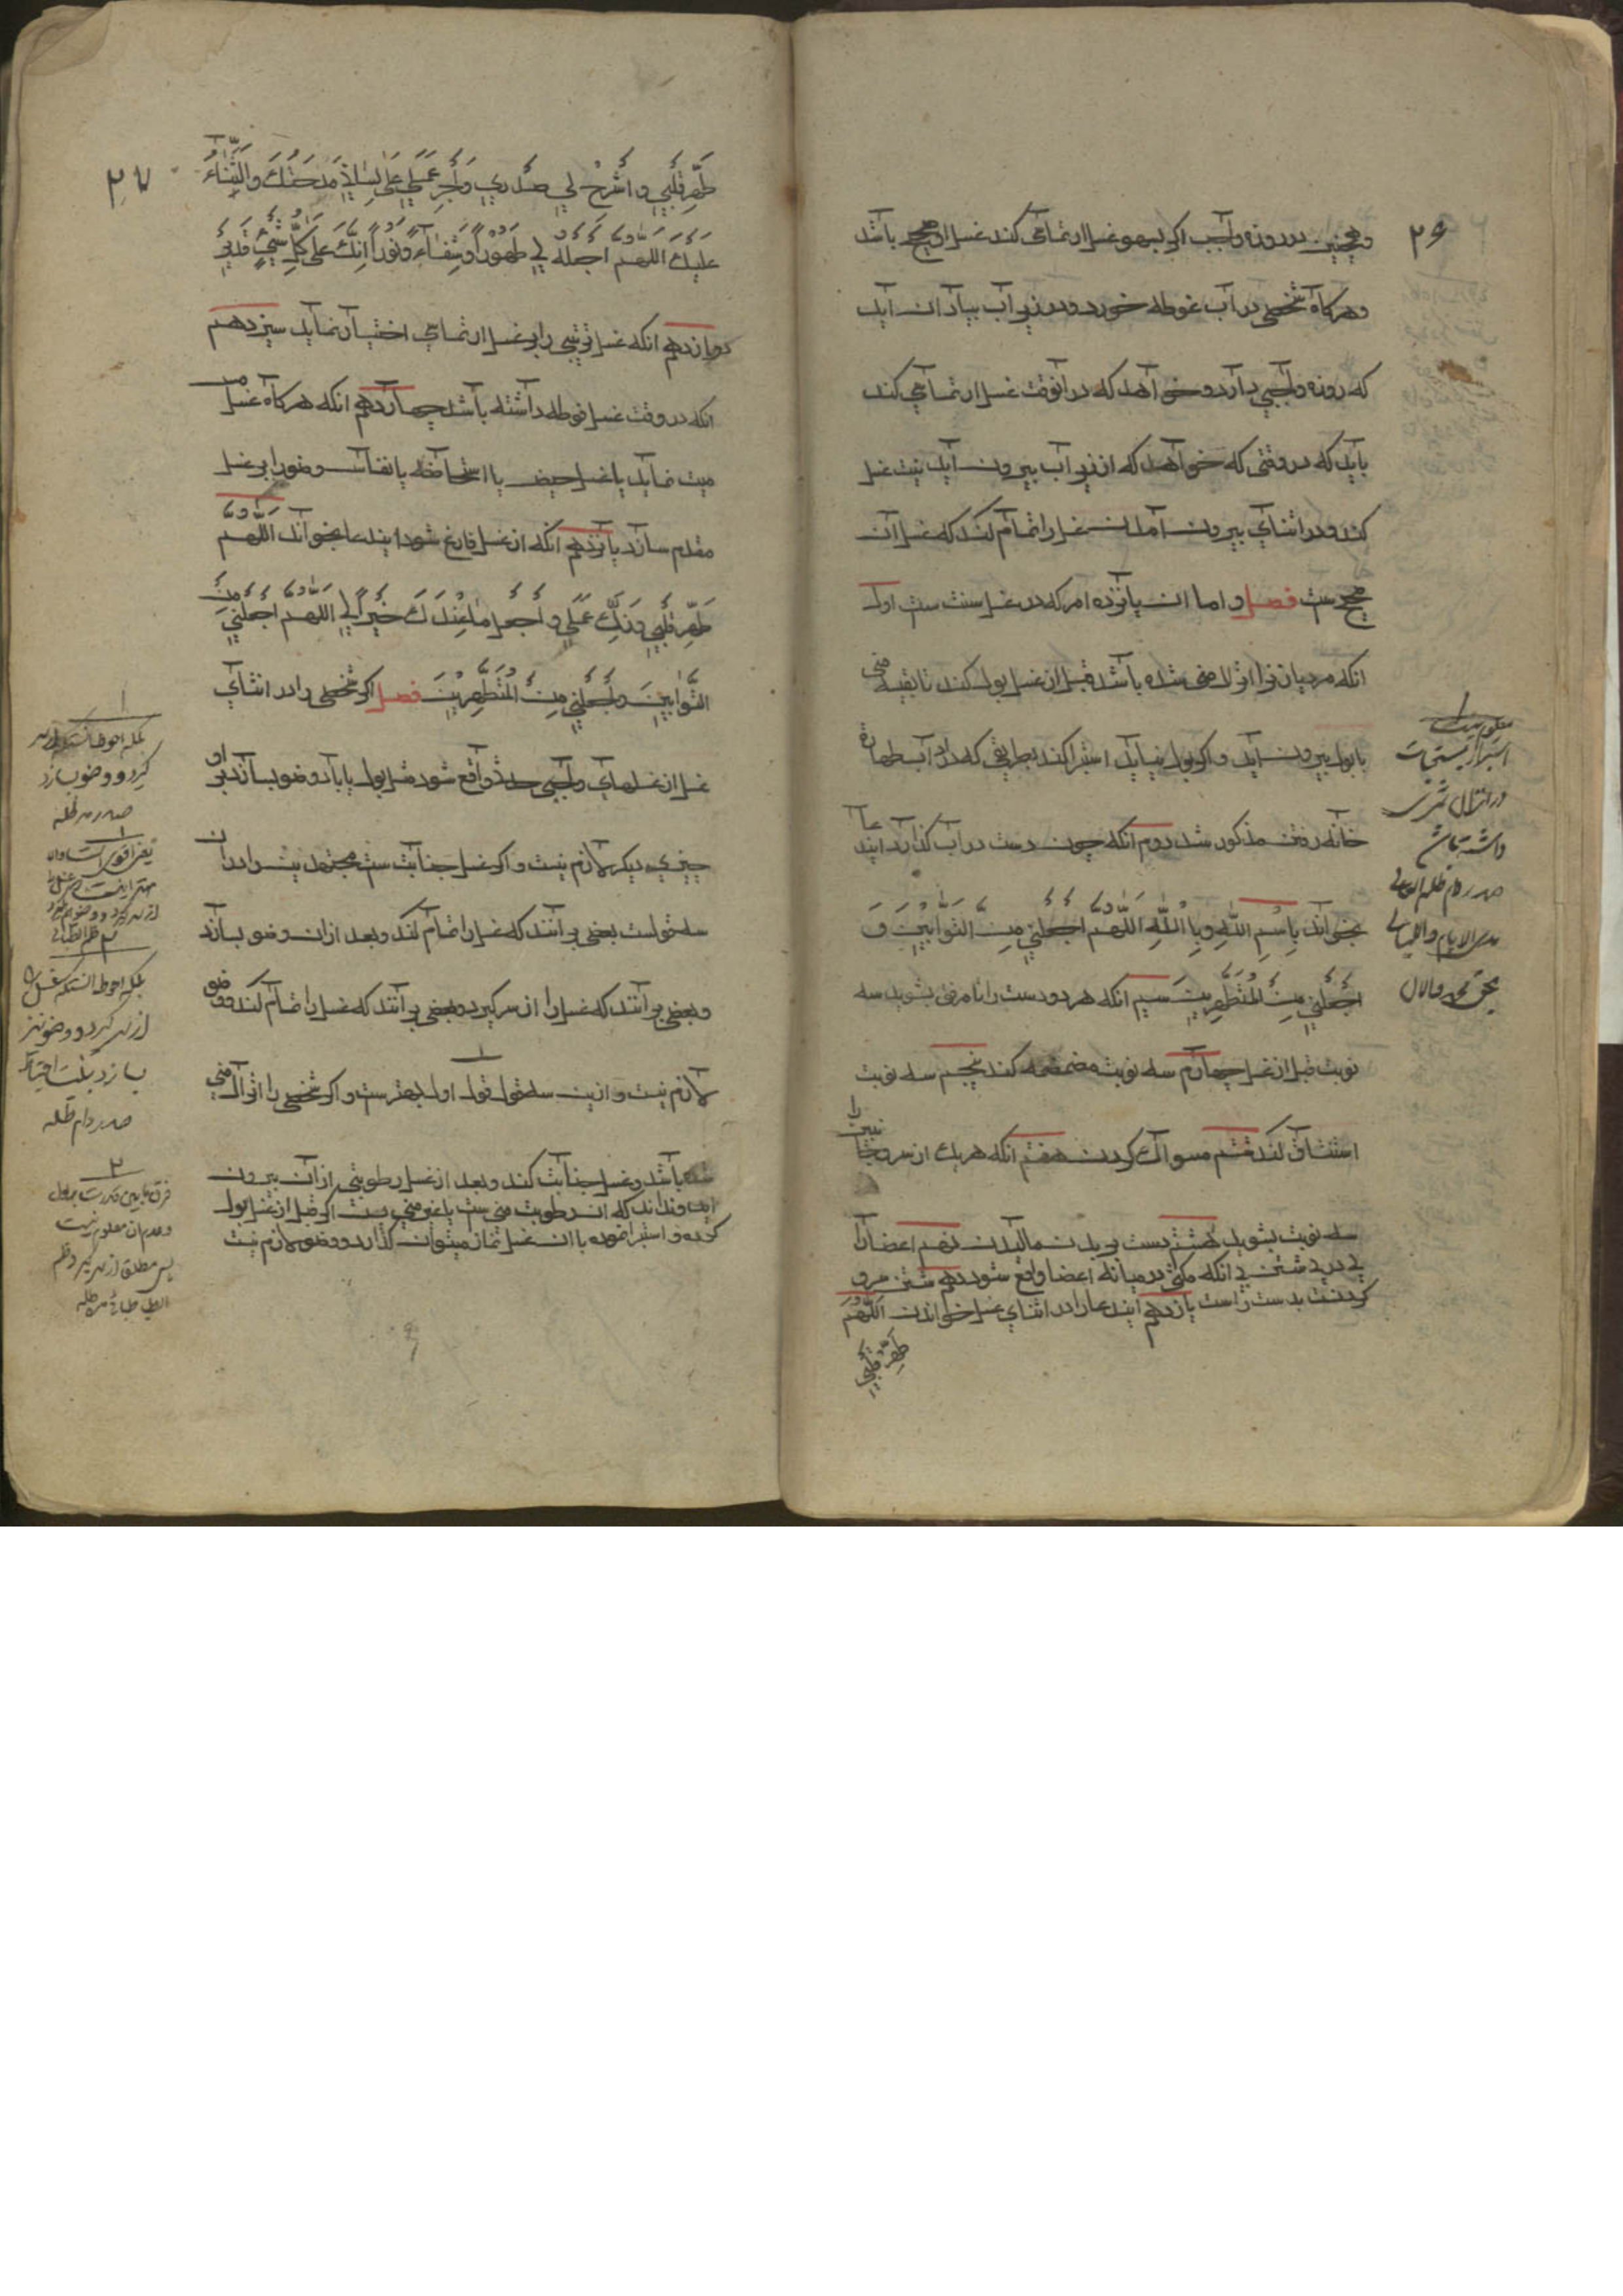 ۲۶
وهمچنین در روزه واجب اکر بسهو غسل ارتماسی کند غسل او صحیح باشد
وهرکاه شخصی در آب غوطه خورد ودر زیر آب بیاد ان اید
که روزه واجبی دارد وخواهد که در انوقت غسل ارتماسی کند
باید که در وقتی که خواهد که از زیر آب بیرون اید نیت غسل
کند ودر اثنای بیرون امدن غسل را تمام کند که غسل آن
صحیح ست فصل و اما ان پانزده امر که در غسل سنت ست اول
انکه مردیان را انزال منی شده باشد قبل از غسل بول کند تا بقیه منی
بابول بیرون اید و اکر بول نیاید استبرا کند بطریقی که در اداب طهارة
خانه رفتن مذکور شد دوم انکه چون دست در آب کذارد ایندعا
بخواند بِاسْمِ اللّٰهِ وَبِا اللّٰهِ اَللّٰهُمَّ اجْعَلْنِي مِنَ التَّوَّابِيْنَ وَ
اجْعَلْنِي مِنَ الْمُتَطَهِّرِيْنَ سیم انکه هر دو دست را تا مرفق بشوید سه
نوبت قبل از غسل چهارم سه نوبت مضمضه کند پنجم سه نوبت
استنشاق کند ششم مسواک کردن هفتم انکه هریک از سر وجانبین را
سه نوبت بشوید هشتم دست بر بدن مالیدن نهم اعضا را
پی در پی شستن بی انکه مکثی در میانه اعضا واقع شود دهم شستن سر و
کردنست بدست راست یازدهم ایندعا را در اثنای غسل خواندن اَللّٰهُمَّ
طَهِّرْ قَلْبِي
استبرا از مستحبات
در انزال
داشته باش
صدر دام ظله العالی
۲۷
طَهِّرْ قَلْبِي وَاشْرَحْ لِي صَدْرِي وَاَجْرِ عَلٰي لِسَانِي مِدْحَتَكَ وَالثَّنَاءَ
عَلَيْكَ اَللّٰهُمَّ اجْعَلْهُ لِي طَهُوْرًا وَشِفَاءً وَنُوْرًا اِنَّكَ عَلٰي كُلِّ شَيْءٍ قَدِيْرٌ
دوازدهم انکه غسل ترتیبی را بر غسل ارتماسی اختیار نماید سیزدهم
انکه در وقت غسل فوطه داشته باشد چهاردهم انکه هرکاه غسل مس
میت نماید یا غسل حیض یا استحاضه یا نفاس وضو را بر غسل
مقدم سازد پانزدهم انکه از غسل فارغ شود ایندعا بخواند اَللّٰهُمَّ
طَهِّرْ قَلْبِي وَزَكِّ عَمَلِي وَاجْعَلْ مَا عِنْدَكَ خَيْرًا لِي اَللّٰهُمَّ اجْعَلْنِي مِنَ
التَّوَّابِيْنَ وَاجْعَلْنِي مِنَ الْمُتَطَهِّرِيْنَ فصل اکر شخصی را در اثنای
غسل از غسلهای واجبی حدث واقع شود مثل بول یا باد وضو بسازد بر او
چیزی دیکر لازم نیست و اکر غسل جنابت ست مجتهدین را در ان
سه قولست بعضی بر انند که غسل را تمام کند و بعد از ان وضو بسازد
و بعضی بر انند که غسل را از سر کیرد وبعضی بر انند که غسل را تمام کند ووضو
لازم نیست و ازین سه قول قول اول بهترست و اکر شخصی را انزال منی
شده باشد وغسل جنابت کند وبعد از غسل رطوبتی از ان بیرون
اید ونداند که ان رطوبت منی ست یا غیر منی ست اکر قبل از غسل بول
کرده و استبرا نموده با ان غسل نماز میتوان کذارد ووضو لازم نیست
بلکه احوط انستکه از سر
کیرد و وضو بسازد
صدر مدظله
بلکه احوط انستکه غسل را
از سر کیرد ووضو نیز
بسازد بنیت احتیاط
صدر دام ظله
۲
و عدم ان معلوم نیست
پس مطلق از سر کیرد